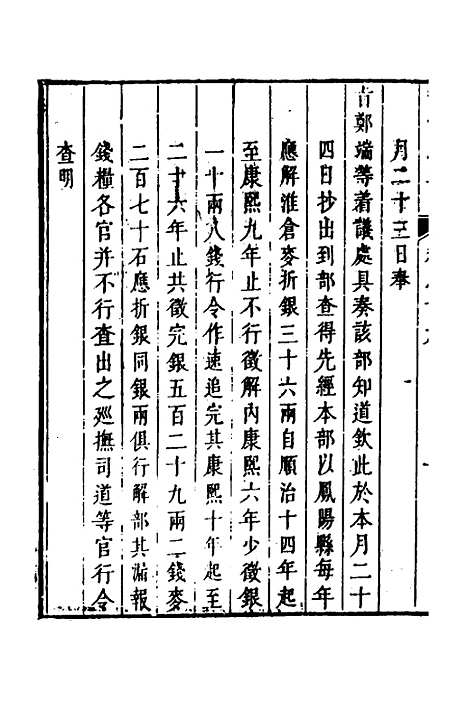 月二十三日奉
旨鄭端等着議處具奏該部知道欽此於本月二十
四日抄出到部查得先經本部以鳳陽縣每年
應解淮倉麥折銀三十六兩自順治十四年起
至康熙九年止不行徵解內康熙六年少徵銀
一十兩八錢行令作速追完其康熙十年起至
二十六年止共徵完銀五百二十九兩二錢麥
二百七十石應折銀同銀兩俱行解部其漏報
錢糧各官并不行查出之廵撫司道等官行令
查明